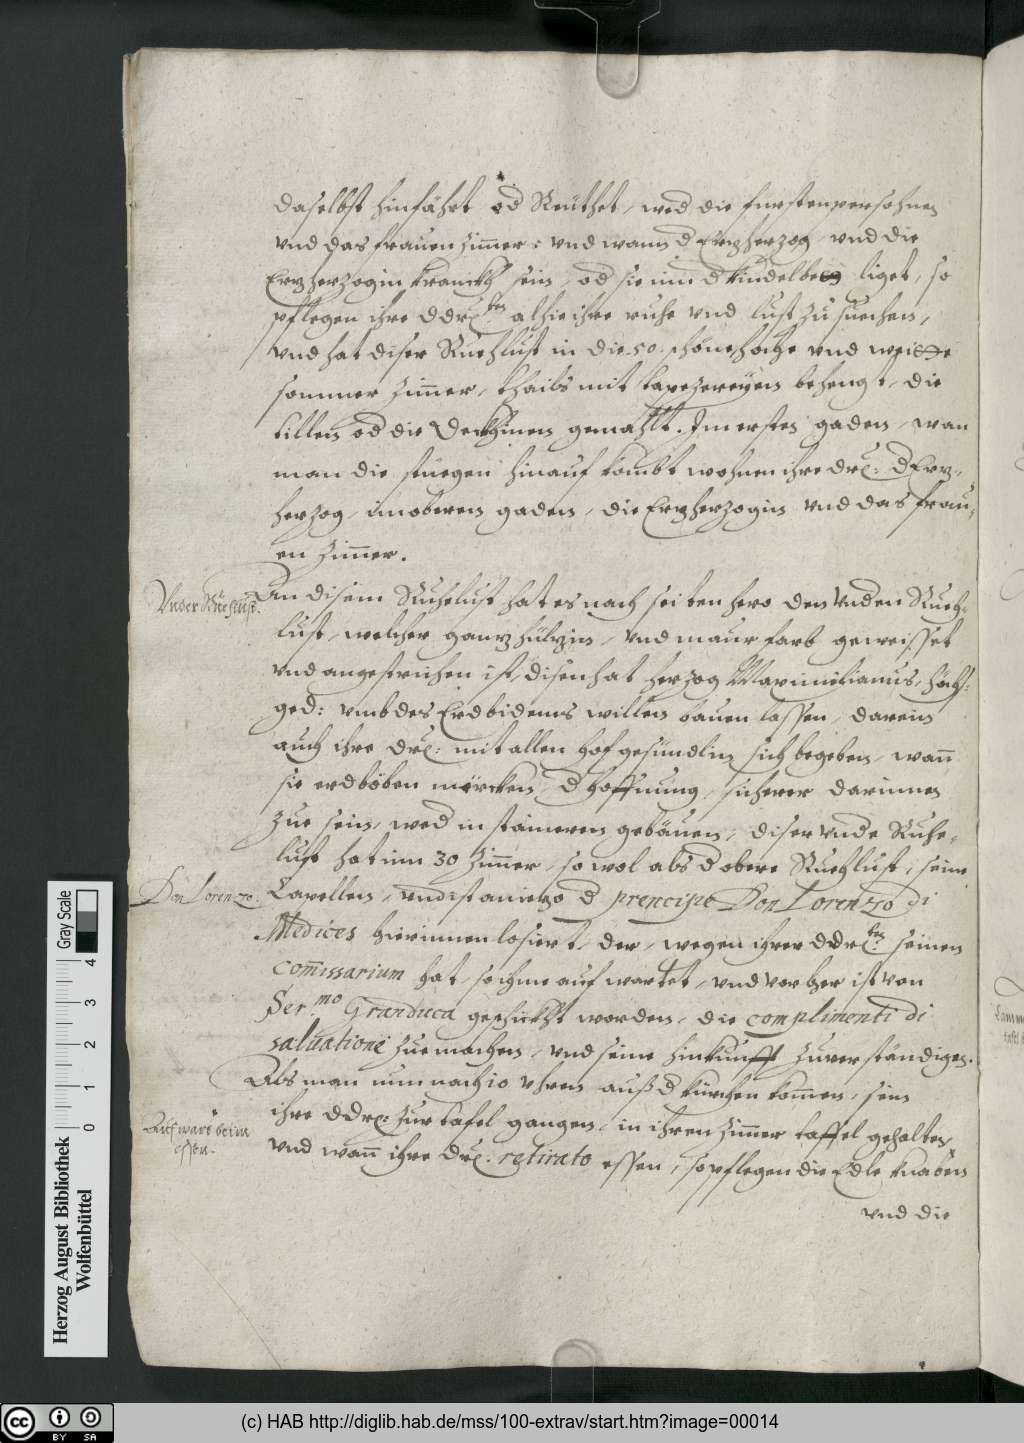 daselbst hinfährt od Reüthet, wed die fursten persohnen
vnd das frauen Zim̅er: vnd wann d Erzherzog vnd die
Erzherzogin kranckh sein, od sie inn d kindelbeth liget, so
pflegen ihre ddrl.ten alhie ihre ruhe vnd lust zu suechen,
vnd hat diser Ruehlust in die .50. schöne hoche vnd weitte
sommer Zim̅er, theils mit tapezereÿen behengt, die
tillen od die Deckhinen gemahlt. Im ersten gaden, wan
man die stuegen hinauf kombt wohnen ihre drl: d Erz-
herzog, im oberen gaden, die Erzherzogin vnd das frau-
en Zim̅er.
Vnder Ruehlust.
An disem Ruhelust hat es nach seiten hero den vnden Rueh-
lust, welcher ganz hülzin, vnd maur farb geweisset
vnd angestrichen ist, disen hat herzog Maximilianus, höchst-
ged: vmb des Erdbidems willen bauen lassen, darein
auch ihre drl: mit allen hofgesündlin sich begeben, wan̅
sie erdbiben mörcken, d hoffnung, sicherer darinnen
zue sein, wed in staineren gebäuen, diser vnde Ruhe-
lust hat inn 30 Zim̅er, so wol als d obere Ruehlust, seine
Don Lorenzo.
Capellen, vnd ist aniezo d prencipe Don Lorenzo di
Medices hierinnen losiert, der, wegen ihrer ddrl.ten seinen
com̅issarium hat, so ihme aufwartet, vnd vorher ist von
Ser.mo Granduca geschickht worden, die complimenti di
saluatione zue machen, vnd seine hinkunfft zuverständigen.
Als man nun nach 10 vhren auß d kürchen kom̅en, sein
Aufwart beim
essen.
ihre ddrl: zur tafel gangen, in ihren Zim̅er taffel gehalten,
vnd wan̅ ihre drl: retirato essen, so pflegen die Edle knaben
vnd die
Herzog August Bibliothek
Wolfenbüttel
Gray Scale
0 1 2 3 4
(c) HAB http://diglib.hab.de/mss/100-extrav/start.htm?image=00014
cc BY SA